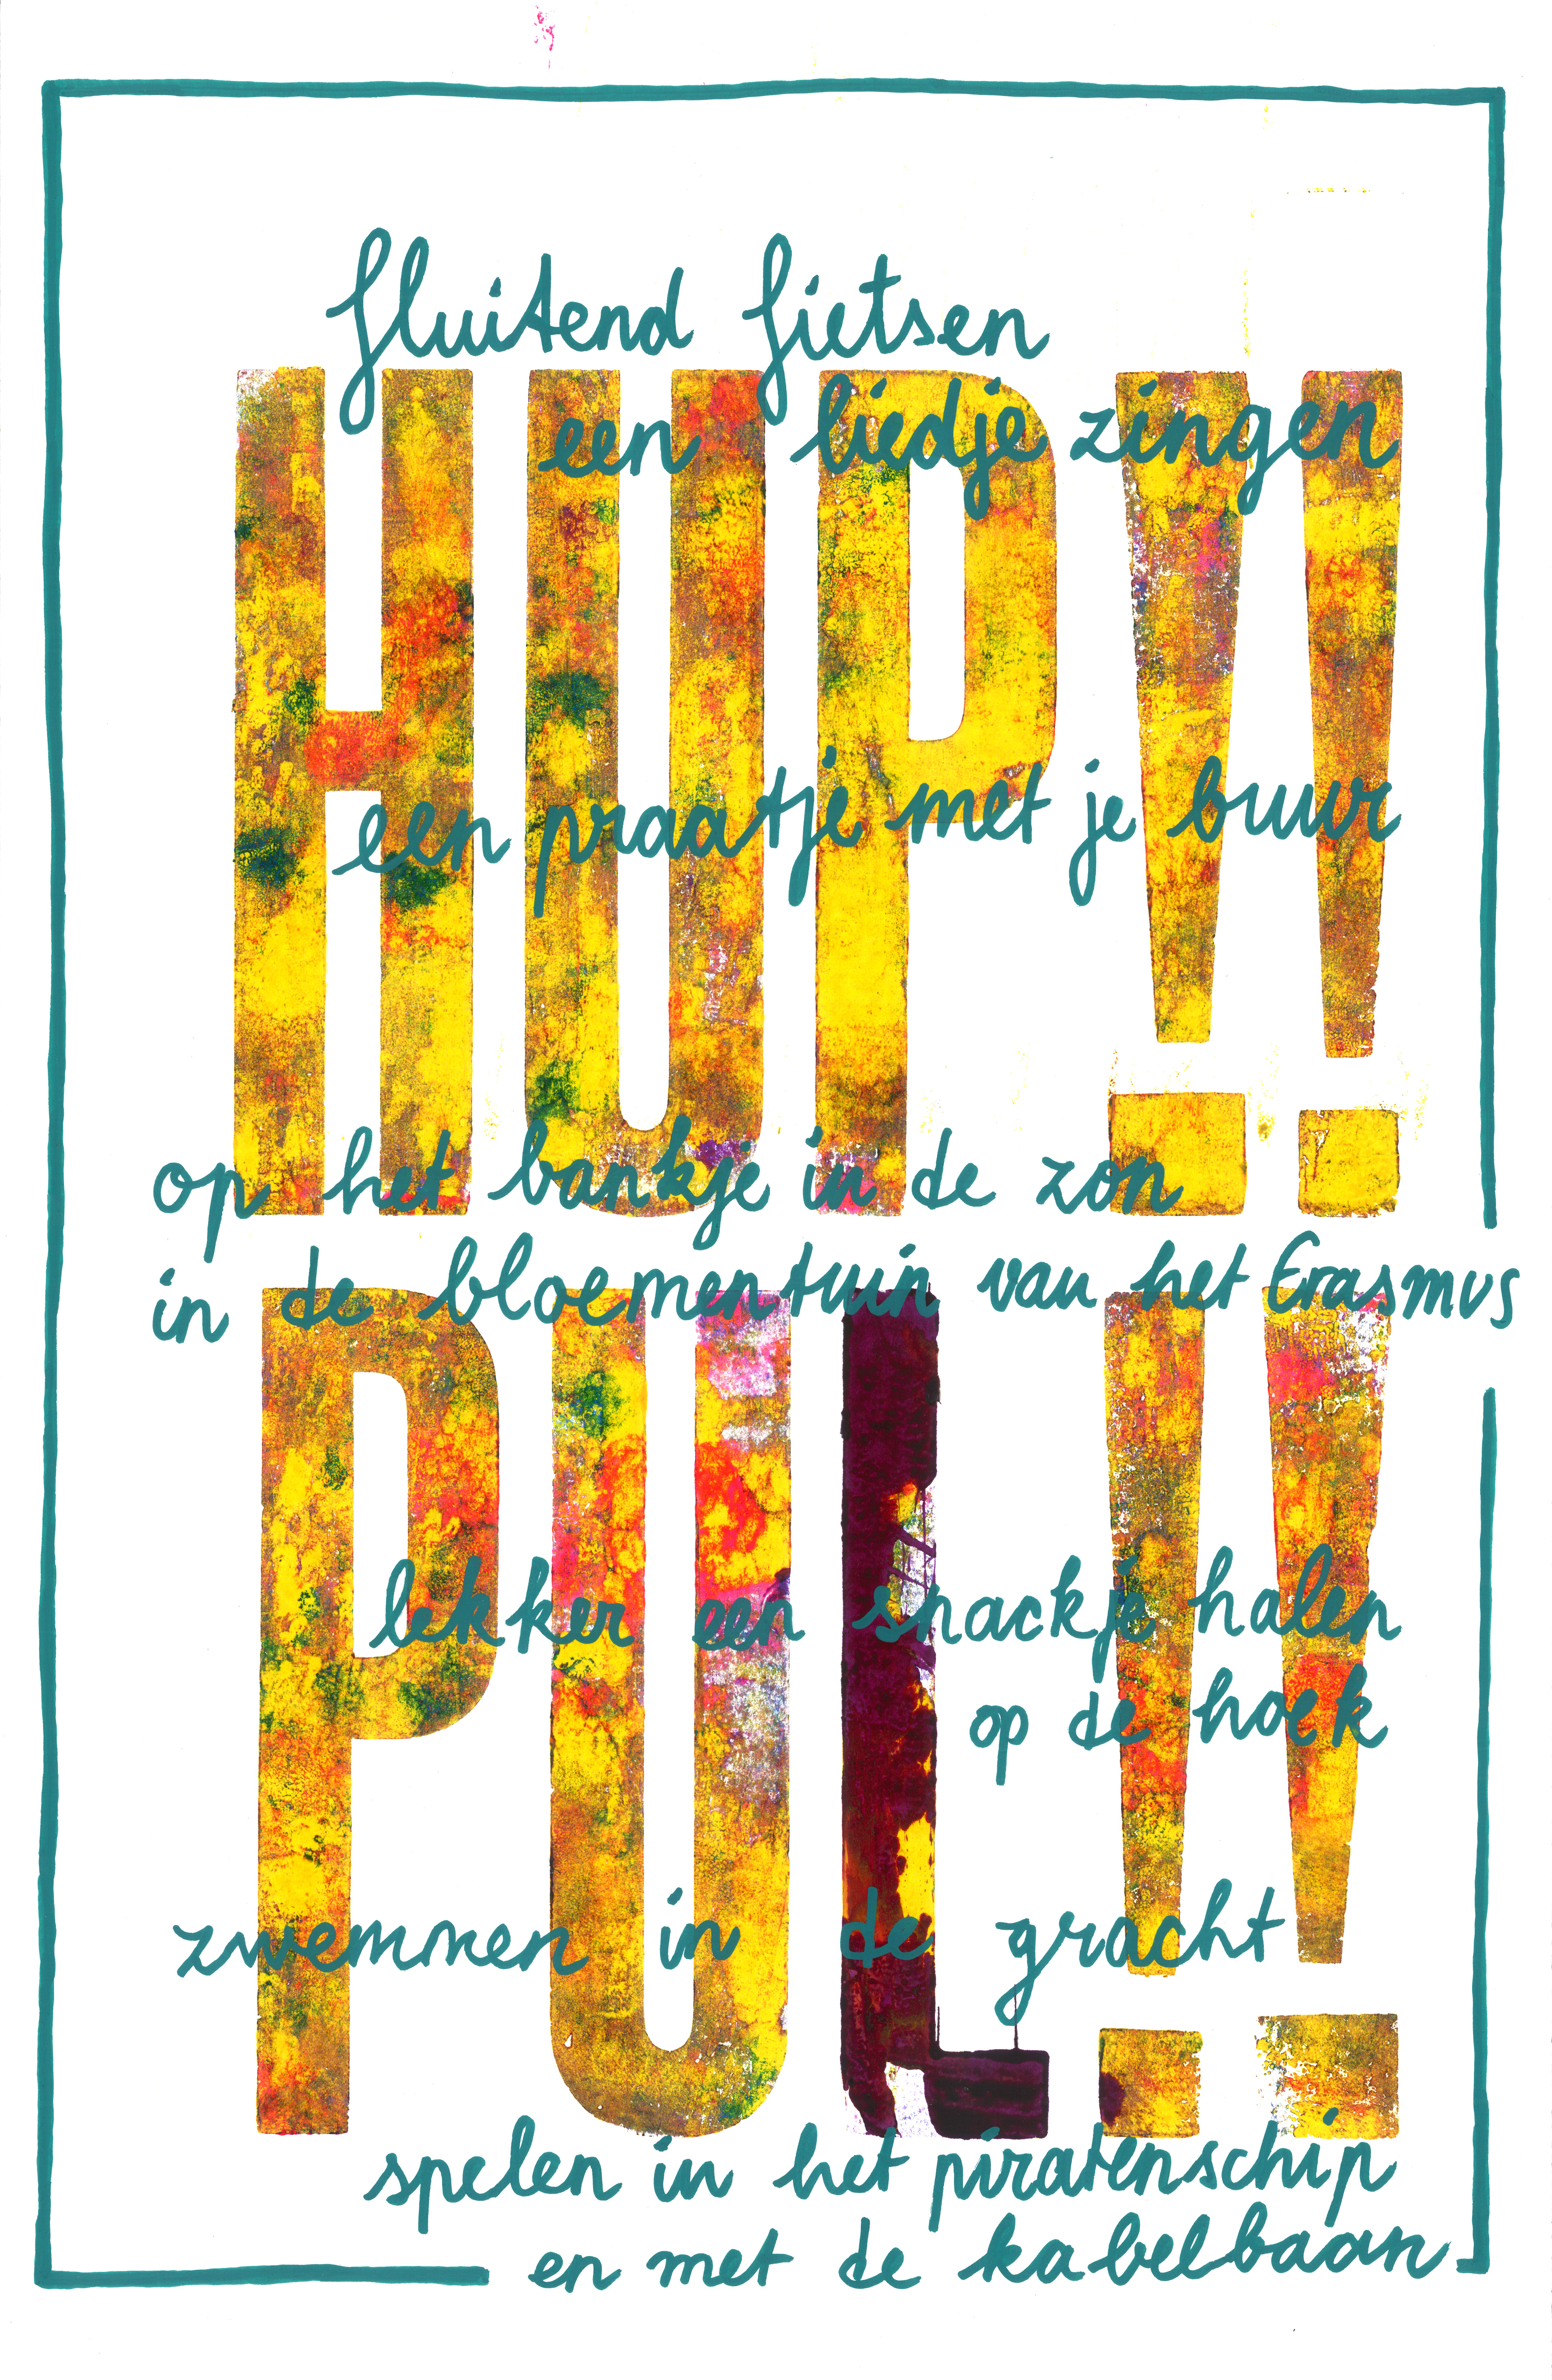 fluitend fietsen
een liedje zingen
HUP!!
een praatje met je buur
op het bankje in de zon
in de bloementuin van het Erasmus
PUL!!
lekker een snackje halen
op de hoek
zwemmen in de gracht
spelen in het piratenschip
en met de kabelbaan